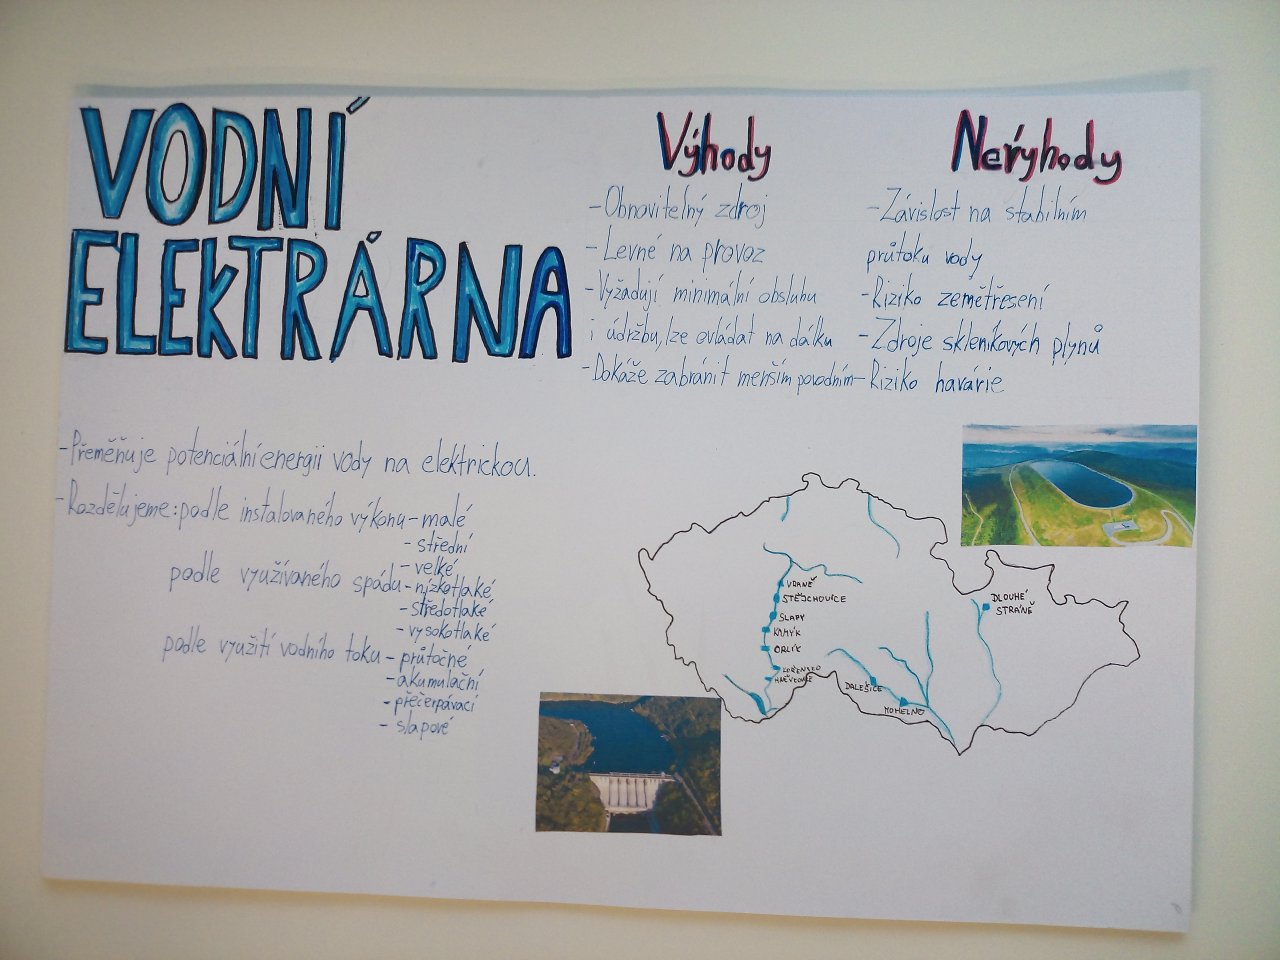 VODNÍ
ELEKTRÁRNA
-Přeměňuje potenciální energii vody na elektrickou.
-Rozdělujeme: podle instalovaného výkonu - malé
- střední
- velké
podle využívaného spádu - nýzkotlaké
- středotlaké
- vysokotlaké
podle využití vodního toku - průtočné
- akumulační
- přečerpávací
- slapové
Výhody
-Obnovitelný zdroj
-Levné na provoz
-Vyžadují minimální obsluhu
i údržbu, lze ovládat na dálku
-Dokáže zabránit menším povodním
Nevýhody
-Závislost na stabilním
průtoku vody
-Riziko zemětřesení
-Zdroje skleníkových plynů
-Riziko havárie
VRANÉ
ŠTĚJCHOVICE
SLAPY
KAMÝK
ORLÍK
KOŘENSKO
DALEŠICE
MOHELNO
DLOUHÉ
STRÁNĚ